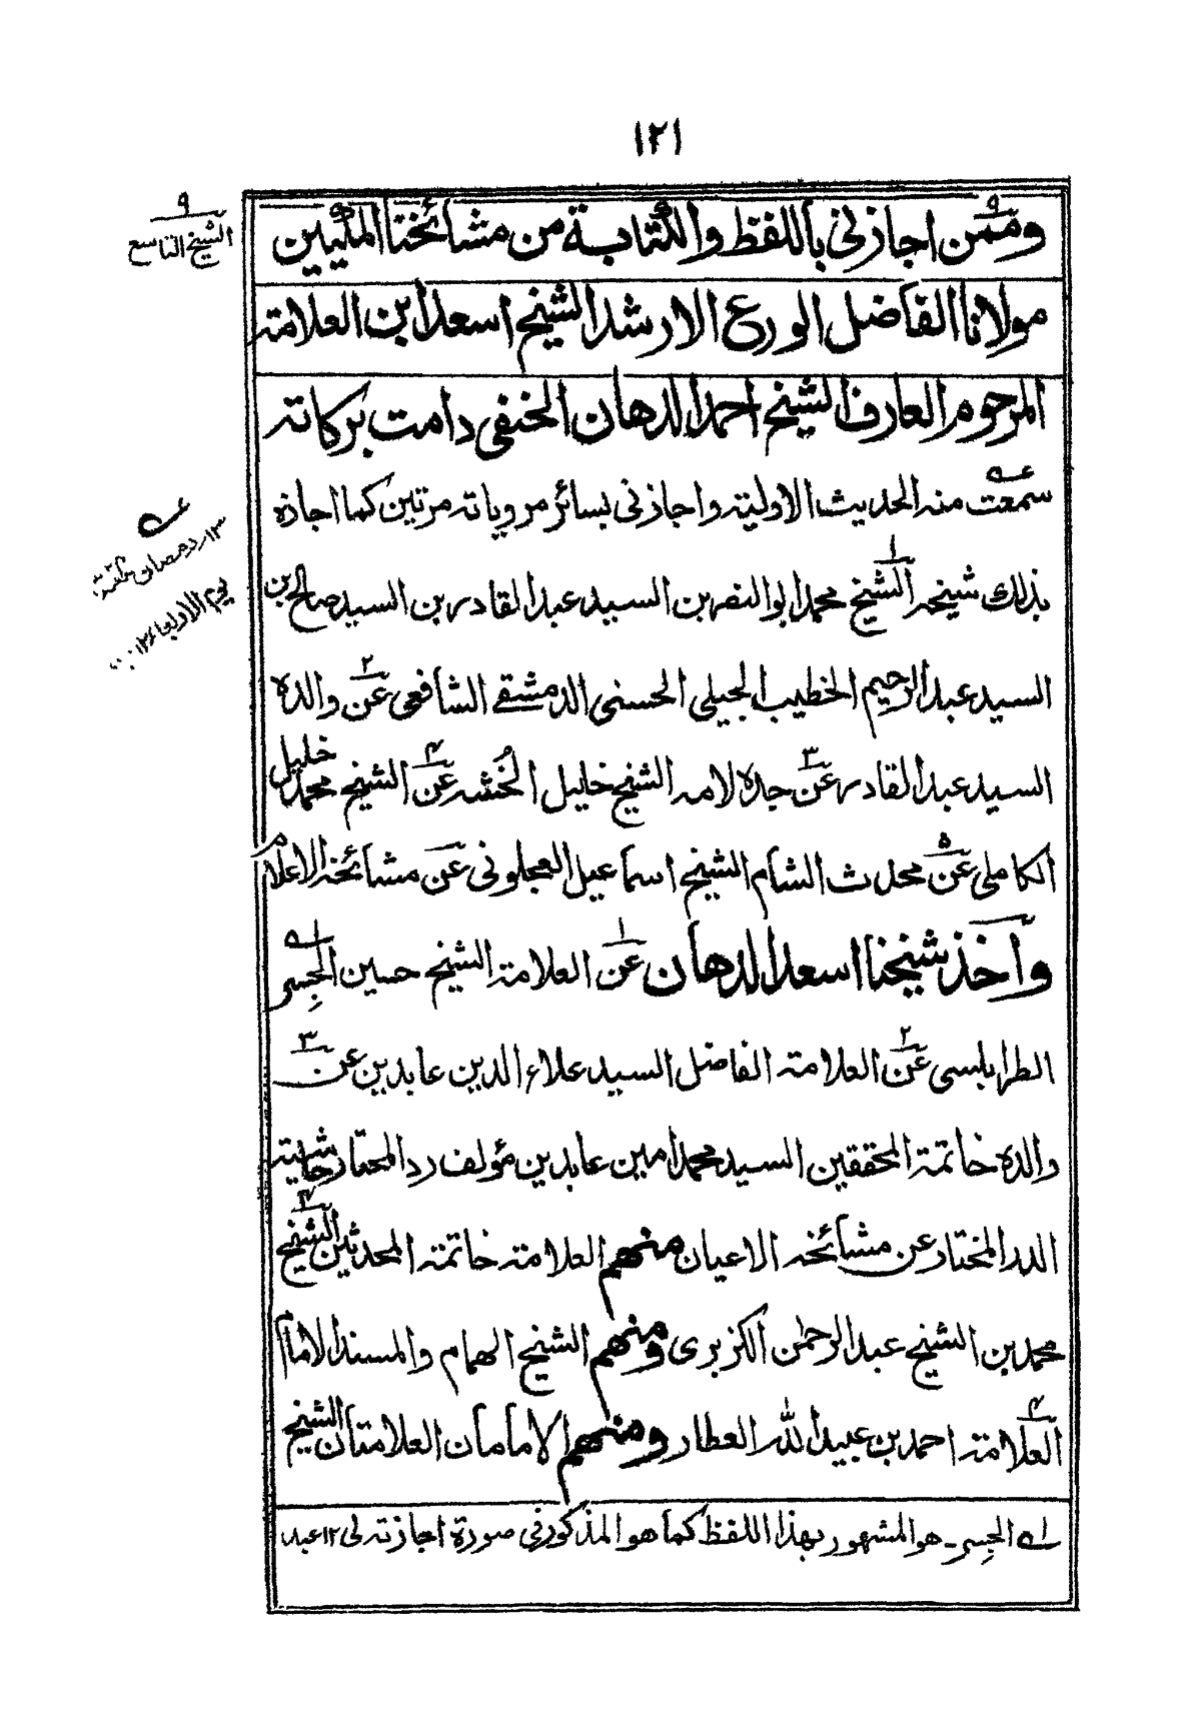 ١٢١
٩
الشيخ التاسع
وممن اجازنى باللفظ والكتابة من مشائخنا المكيين
مولانا الفاضل الورع الارشد الشيخ اسعد ابن العلامة
المرحوم العارف الشيخ احمد الدهان الحنفى دامت بركاته
سمعت منه الحديث الاولية واجازنى بسائر مروياته مرتين كما اجازه
بذلك شيخه الشيخ محمد ابو النصر بن السيد عبد القادر بن السيد صالح بن
السيد عبد الرحيم الخطيب الجيلى الحسنى الدمشقے الشافعى عن والده
السيد عبد القادر عن جده لامه الشيخ خليل الخُشه عن الشيخ محمد خليل
الكاملى عن محدث الشام الشيخ اسماعيل العجلونى عن مشائخه الاعلام
وآخذ شيخنا اسعد الدهان عن العلامة الشيخ حسين الجِسر
الطرابلسى عن العلامة الفاضل السيد علاء الدين عابدين عن
والده خاتمة المحققين السيد محمد امين عابدين مؤلف رد المحتار حاشية
الدر المختار عن مشائخه الاعيان منهم العلامة خاتمة المحدثين الشيخ
محمد بن الشيخ عبد الرحمٰن الكزبرى ومنهم الشيخ الهمام والمسند الامام
العلامة احمد بن عبيد الله العطار ومنهم الامامان العلامتان الشيخ
١ے الجِسر ـ هو المشهور بهذا اللفظ كما هو المذكور فى صورة اجازته لى ١٢ عبد
عے
١٣ رمضان
يوم الاربعاء ١٢